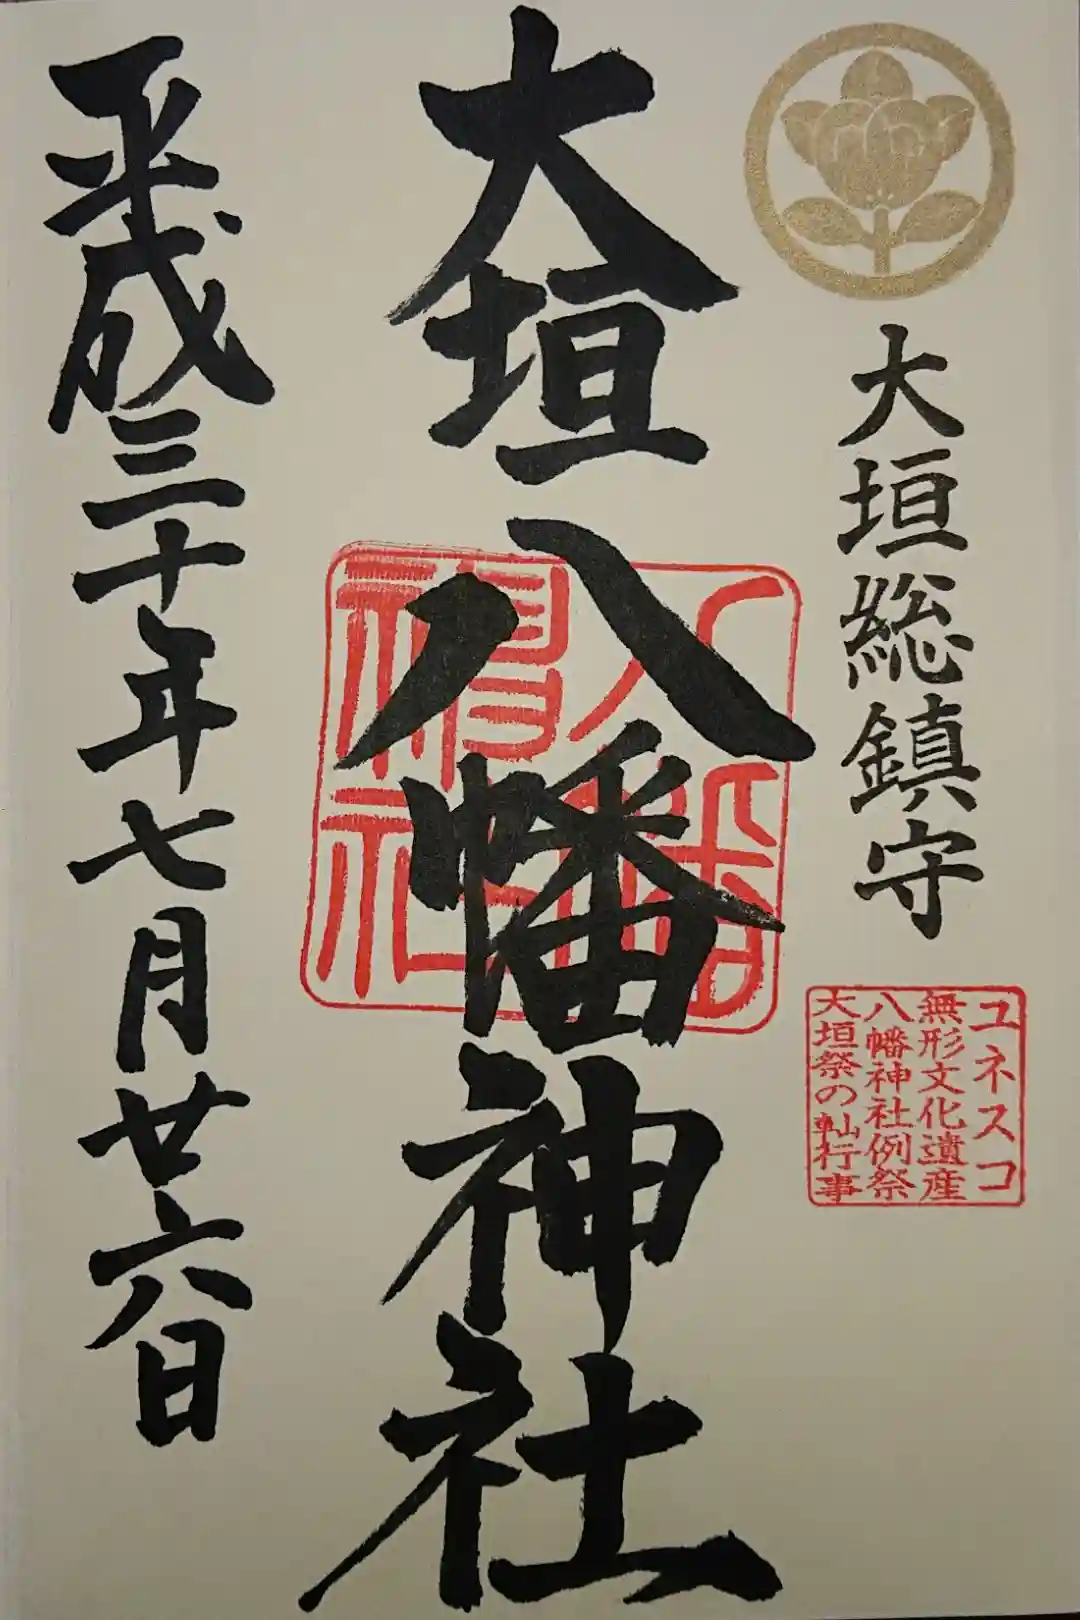 大垣総鎮守
ユネスコ
無形文化遺産
八幡神社例祭
大垣祭の軕行事
大垣八幡神社
平成三十年七月廿六日